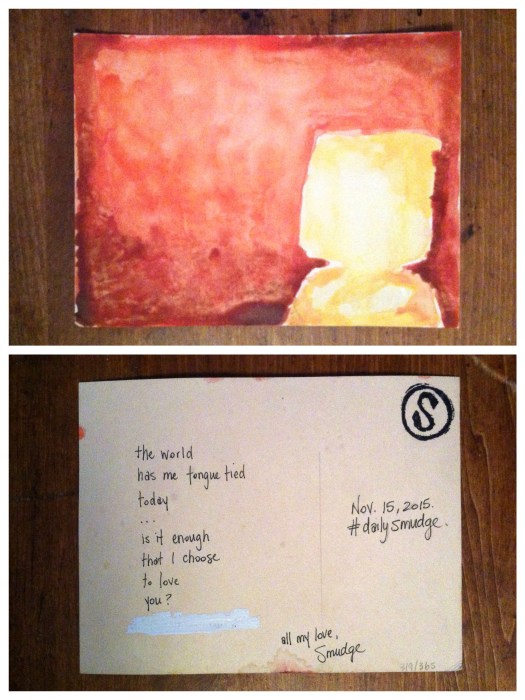 S
the world
has me tongue tied
today
...
is it enough
that I choose
to love
you?
Nov. 15, 2015.
#dailysmudge.
all my love,
Smudge
319/365